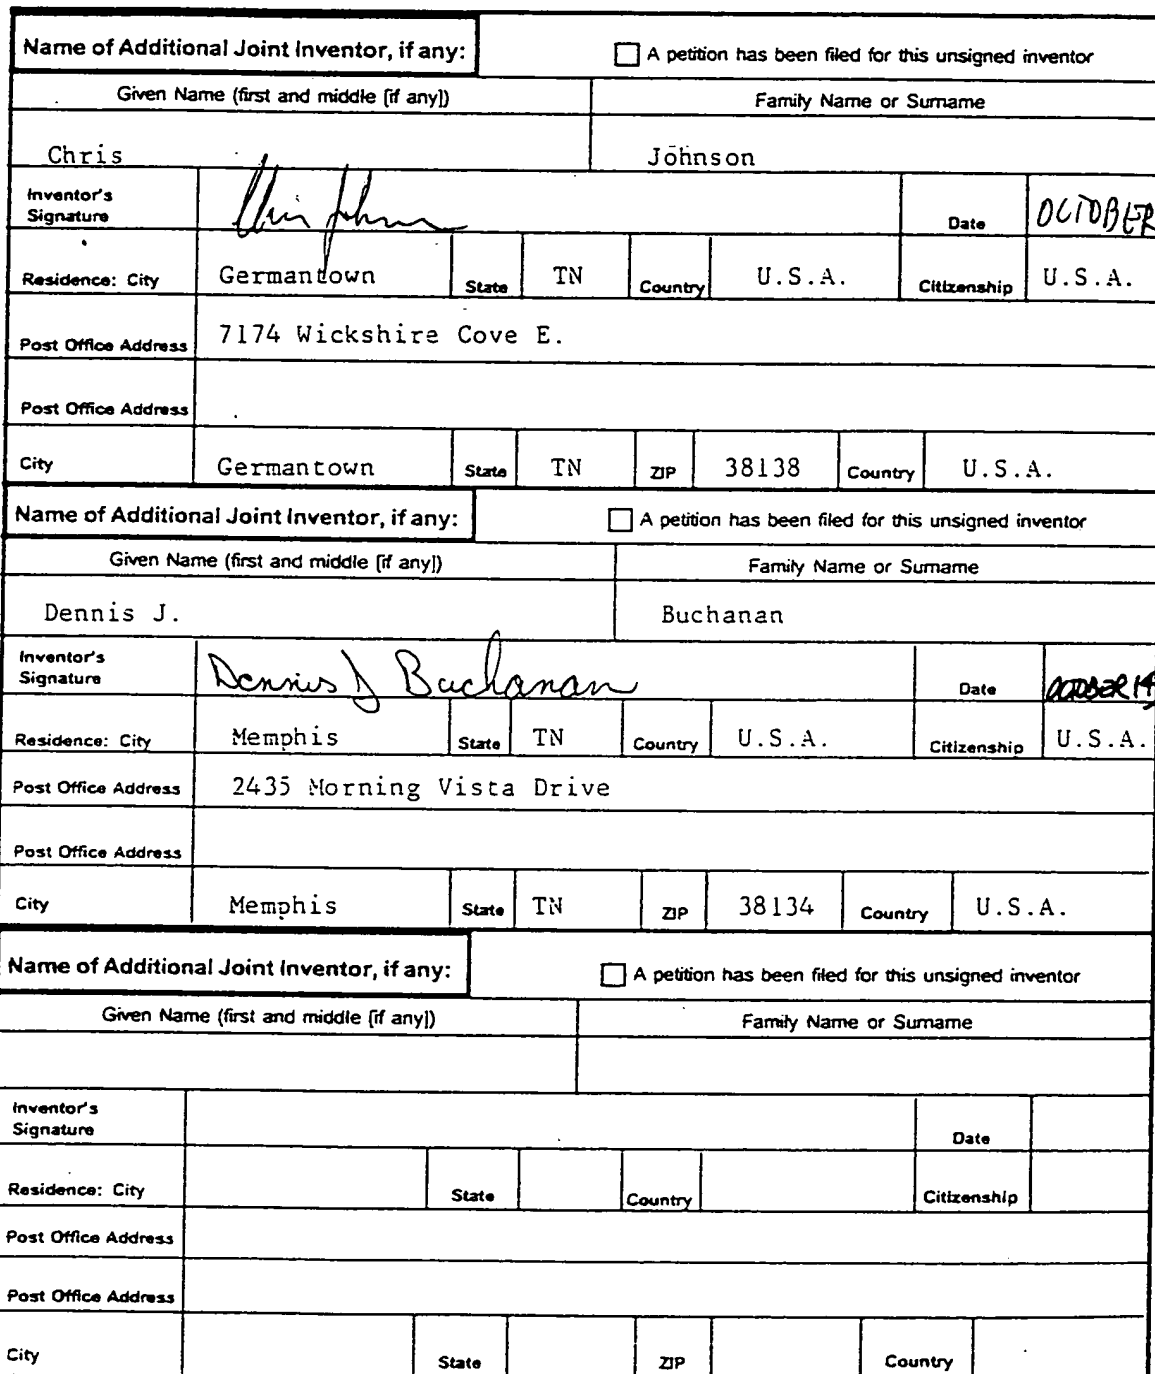 Name of Additional Joint Inventor, if any: A petition has been filed for this unsigned inventor
Given Name (first and middle [if any]) Family Name or Surname
Chris Johnson
Inventor's Signature Chris Johnson Date OCTOBER
Residence: City Germantown State TN Country U.S.A. Citizenship U.S.A.
Post Office Address 7174 Wickshire Cove E.
Post Office Address
City Germantown State TN ZIP 38138 Country U.S.A.
Name of Additional Joint Inventor, if any: A petition has been filed for this unsigned inventor
Given Name (first and middle [if any]) Family Name or Surname
Dennis J. Buchanan
Inventor's Signature Dennis J Buchanan Date OCTOBER 14
Residence: City Memphis State TN Country U.S.A. Citizenship U.S.A.
Post Office Address 2435 Morning Vista Drive
Post Office Address
City Memphis State TN ZIP 38134 Country U.S.A.
Name of Additional Joint Inventor, if any: A petition has been filed for this unsigned inventor
Given Name (first and middle [if any]) Family Name or Surname
Inventor's Signature Date
Residence: City State Country Citizenship
Post Office Address
Post Office Address
City State ZIP Country